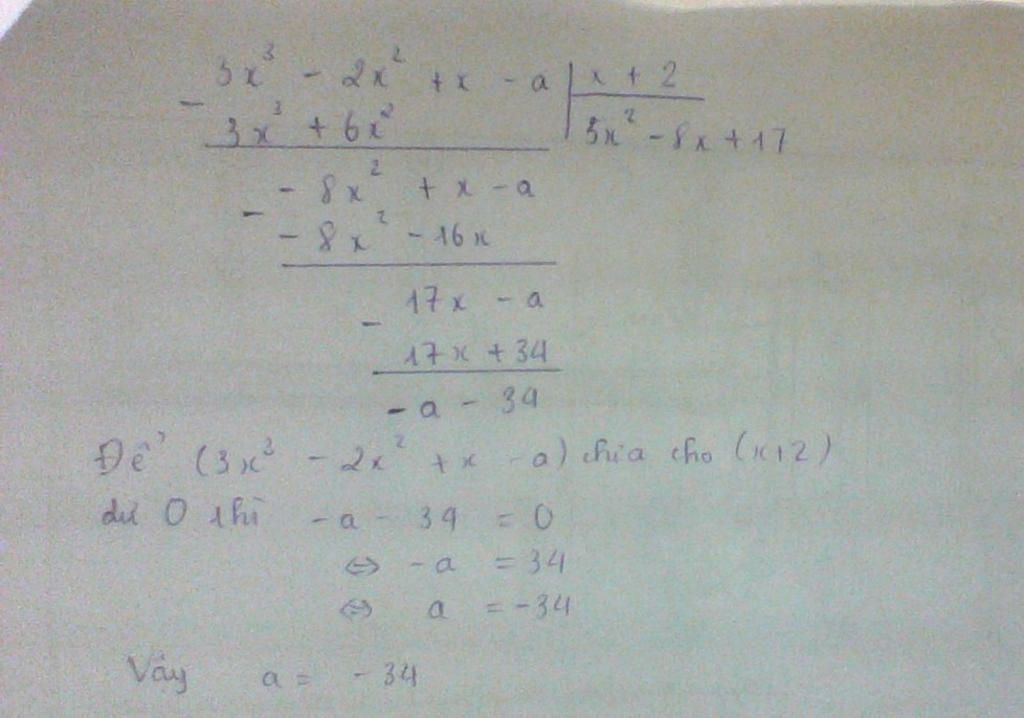 3x³ - 2x² + x - a | x + 2
3x³ + 6x² | 3x² - 8x + 17
- 8x² + x - a
- 8x² - 16x
17x - a
17x + 34
- a - 34
Để (3x³ - 2x² + x - a) chia cho (x+2)
dư 0 thì - a - 34 = 0
⇔ - a = 34
⇔ a = - 34
Vậy a = - 34